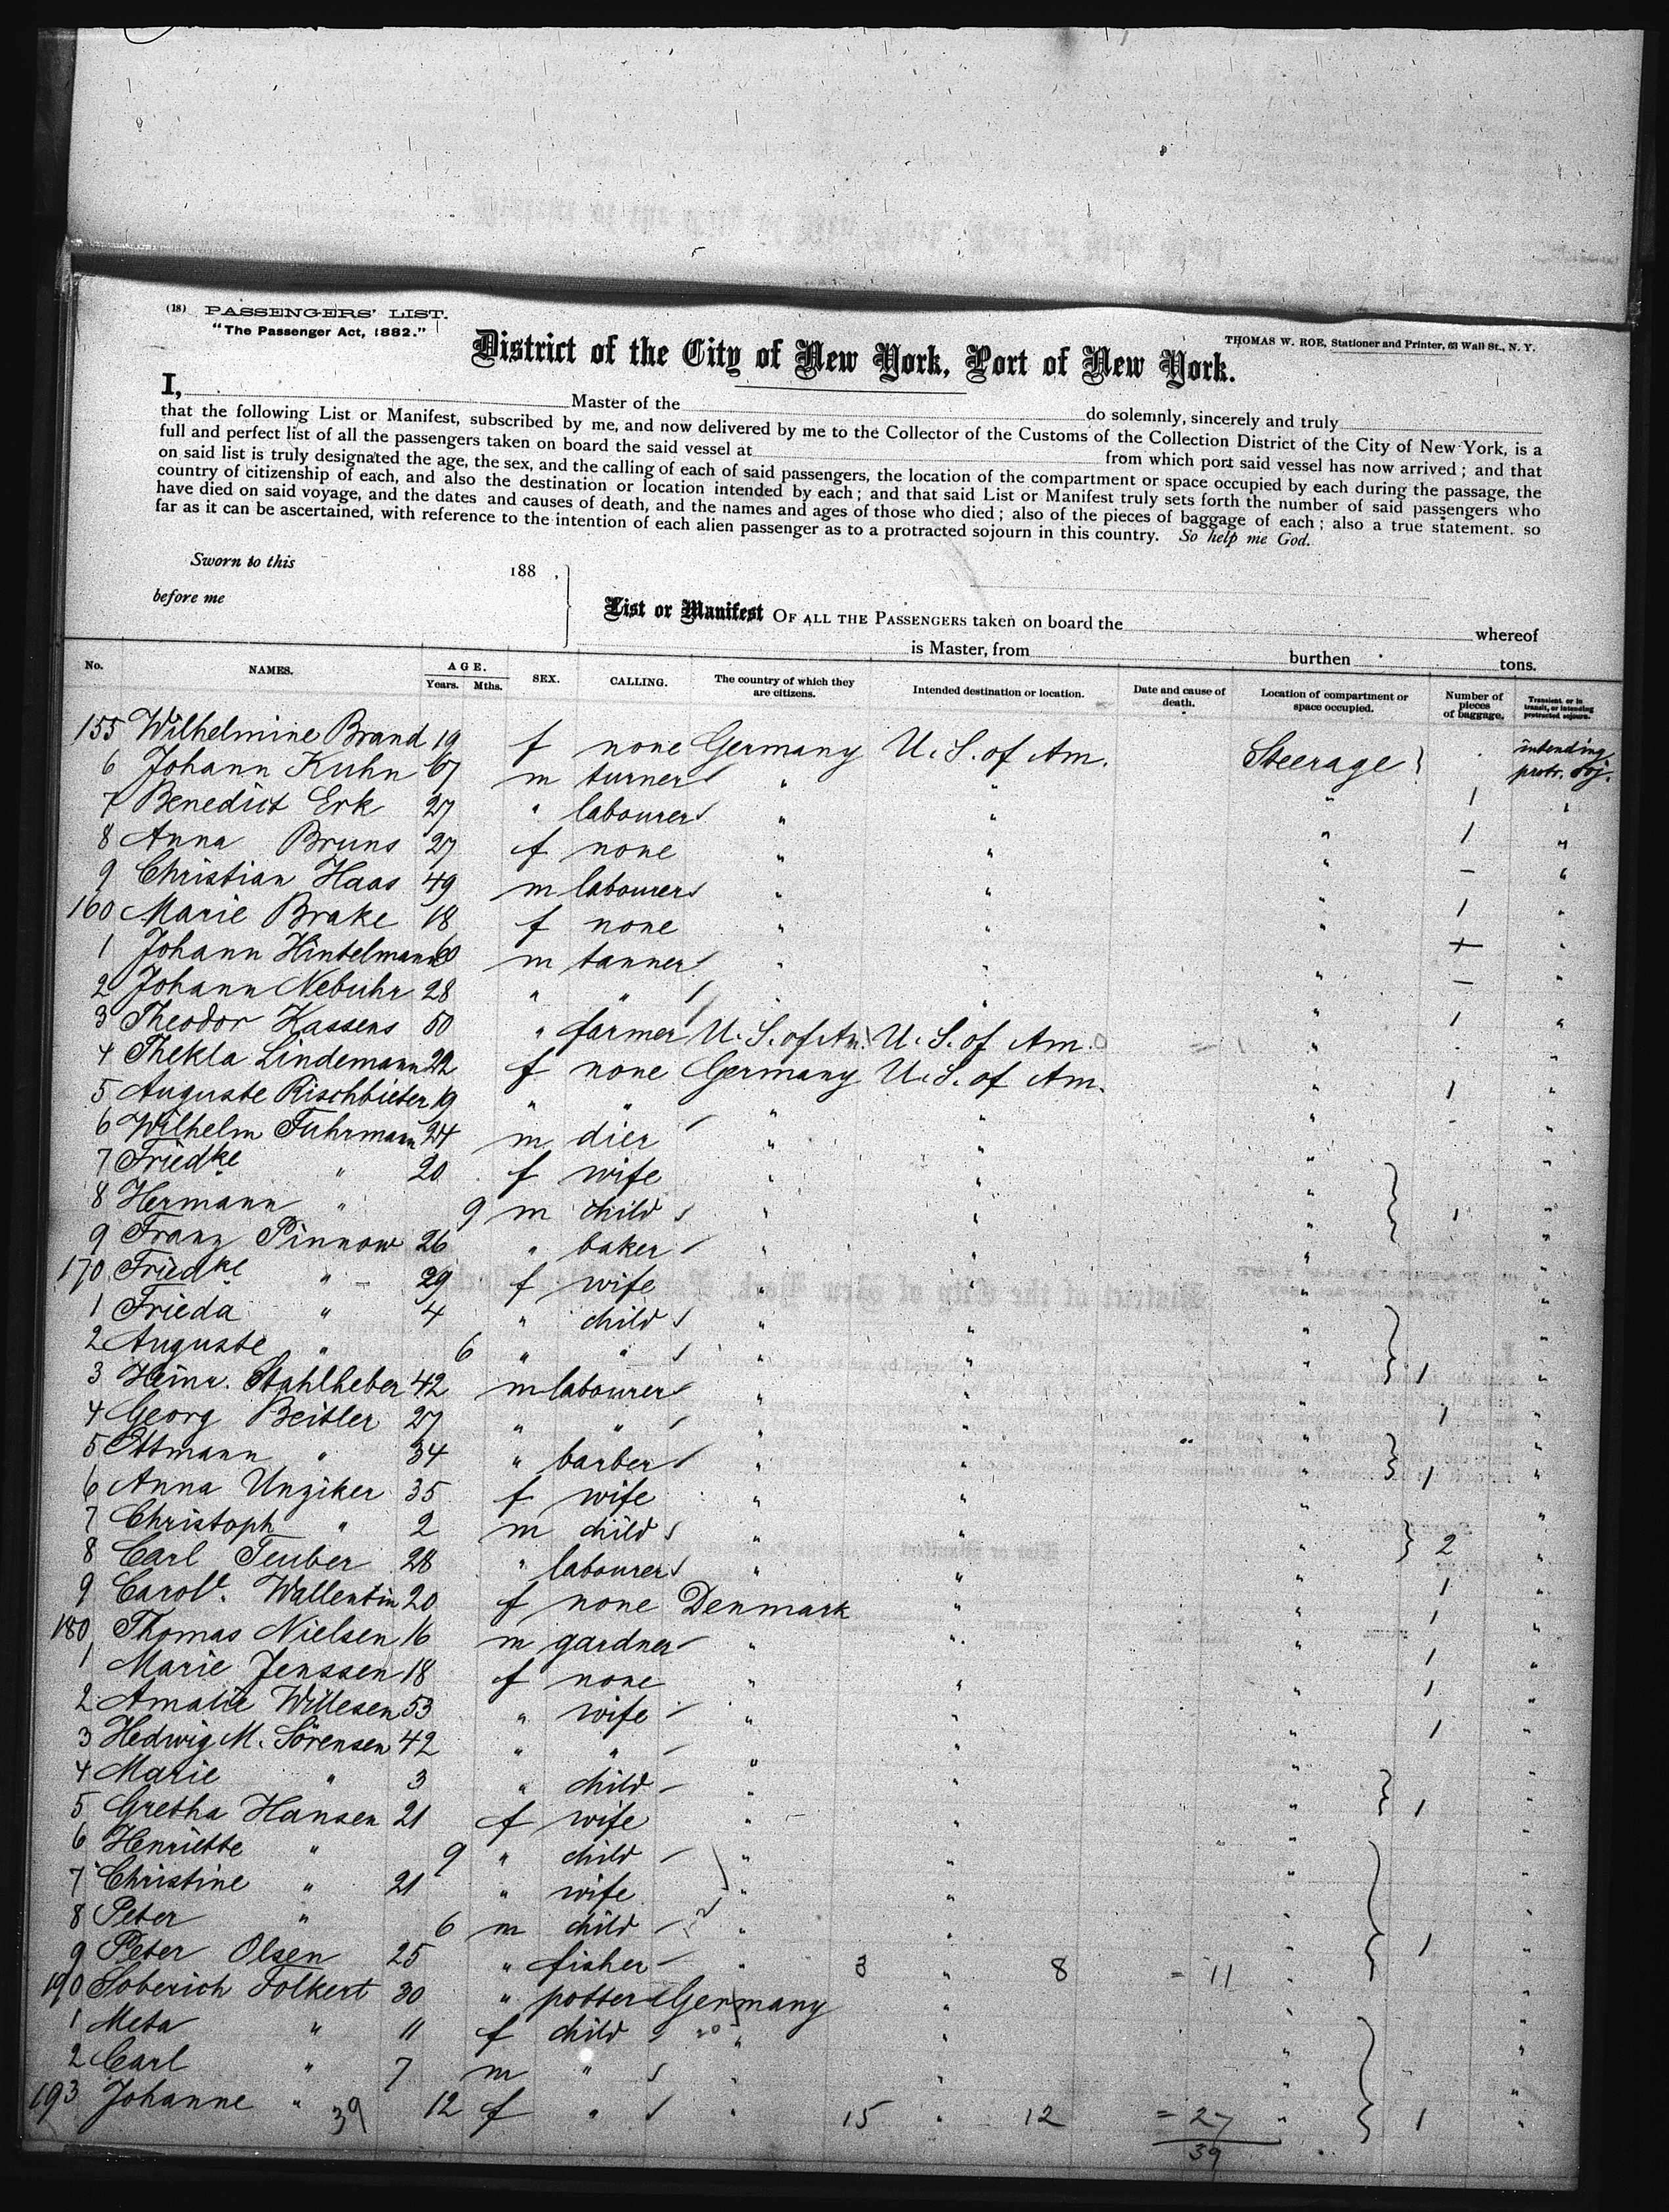 (18) PASSENGERS' LIST.
"The Passenger Act, 1882."
THOMAS W. ROE, Stationer and Printer, 63 Wall St., N. Y.
District of the City of New York, Port of New York.
I, Master of the do solemnly, sincerely and truly
that the following List or Manifest, subscribed by me, and now delivered by me to the Collector of the Customs of the Collection District of the City of New York, is a
full and perfect list of all the passengers taken on board the said vessel at from which port said vessel has now arrived; and that
on said list is truly designated the age, the sex, and the calling of each of said passengers, the location of the compartment or space occupied by each during the passage, the
country of citizenship of each, and also the destination or location intended by each; and that said List or Manifest truly sets forth the number of said passengers who
have died on said voyage, and the dates and causes of death, and the names and ages of those who died; also of the pieces of baggage of each; also a true statement, so
far as it can be ascertained, with reference to the intention of each alien passenger as to a protracted sojourn in this country. So help me God.
Sworn to this 188 .
before me
List or Manifest OF ALL THE PASSENGERS taken on board the whereof
is Master, from burthen tons.
No. NAMES. AGE. Years. Mths. SEX. CALLING. The country of which they are citizens. Intended destination or location. Date and cause of death. Location of compartment or space occupied. Number of pieces of baggage. Transient or in transit, or intending protracted sojourn.
155 Wilhelmine Brand 19 f none Germany U. S. of Am. Steerage intending protr. soj.
6 Johann Kuhn 67 m turner " " " 1 "
7 Benedict Erk 27 " labourer " " " 1 "
8 Anna Bruns 27 f none " " " – "
9 Christian Haas 49 m labourer " " " 1 "
160 Marie Brake 18 f none " " " "
1 Johann Hintelmann 60 m tanner " " " – "
2 Johann Nebuhr 28 " " " " " 1 "
3 Theodor Kassens 50 " farmer U. S. of Am. U. S. of Am. "
4 Thekla Lindemann 22 f none Germany U. S. of Am. " 1 "
5 Auguste Rischbieter 19 " " " " " - "
6 Wilhelm Fuhrmann 24 m dier " " " "
7 Friedke " 20 f wife " " " "
8 Hermann " 9 m child " " " 1 "
9 Franz Pinnow 26 " baker " " " "
170 Friedke " 29 f wife " " " "
1 Frieda " 4 " child " " " "
2 Auguste " 6 " " " " " 1 "
3 Heinr. Stahlheber 42 m labourer " " " 1 "
4 Georg Beitler 27 " " " " " "
5 Ottmann " 34 " barber " " " 1 "
6 Anna Unziker 35 f wife " " " "
7 Christoph " 2 m child " " " 2 "
8 Carl Teuber 28 " labourer " " " 1 "
9 Carol. Wallentin 20 f none Denmark " " 1 "
180 Thomas Nielsen 16 m gardner " " " 1 "
1 Marie Jenssen 18 f none " " " 1 "
2 Amalie Willesen 53 " wife " " " 1 "
3 Hedwig M. Sörensen 42 " " " " " "
4 Marie " 3 " child " " " 1 "
5 Gretha Hansen 21 f wife " " " "
6 Henriette " 9 " child " " " "
7 Christine " 21 " wife " " " "
8 Peter " 6 m child " " " 1 "
9 Peter Olsen 25 " fisher " 3 " 8 = 11 "
190 Soberich Folkert 30 " potter Germany " " "
1 Meta " 11 f child " " " "
2 Carl " 7 m " " " " "
193 Johanne " 12 f " " 15 " 12 = 27 " 1 "
39 39